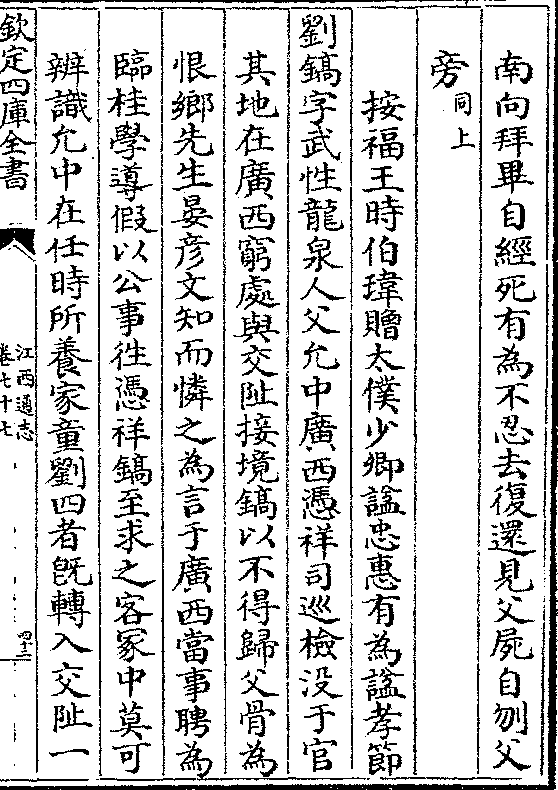 南向拜畢自經死有為不忍去復還見父屍自刎父
旁同上
按福王時伯瑋贈太僕少卿諡忠惠有為諡孝節
劉鎬字武性龍泉人父允中廣西憑祥司巡檢没于官
其地在廣西窮處與交阯接境鎬以不得歸父骨為
恨鄉先生晏彦文知而憐之為言于廣西當事聘為
臨桂學導假以公事徃憑祥鎬至求之客冢中莫可
辨識允中在任時所養家童劉四者旣轉入交阯一
欽定四庫全書
江西通志
卷七十七
四十三